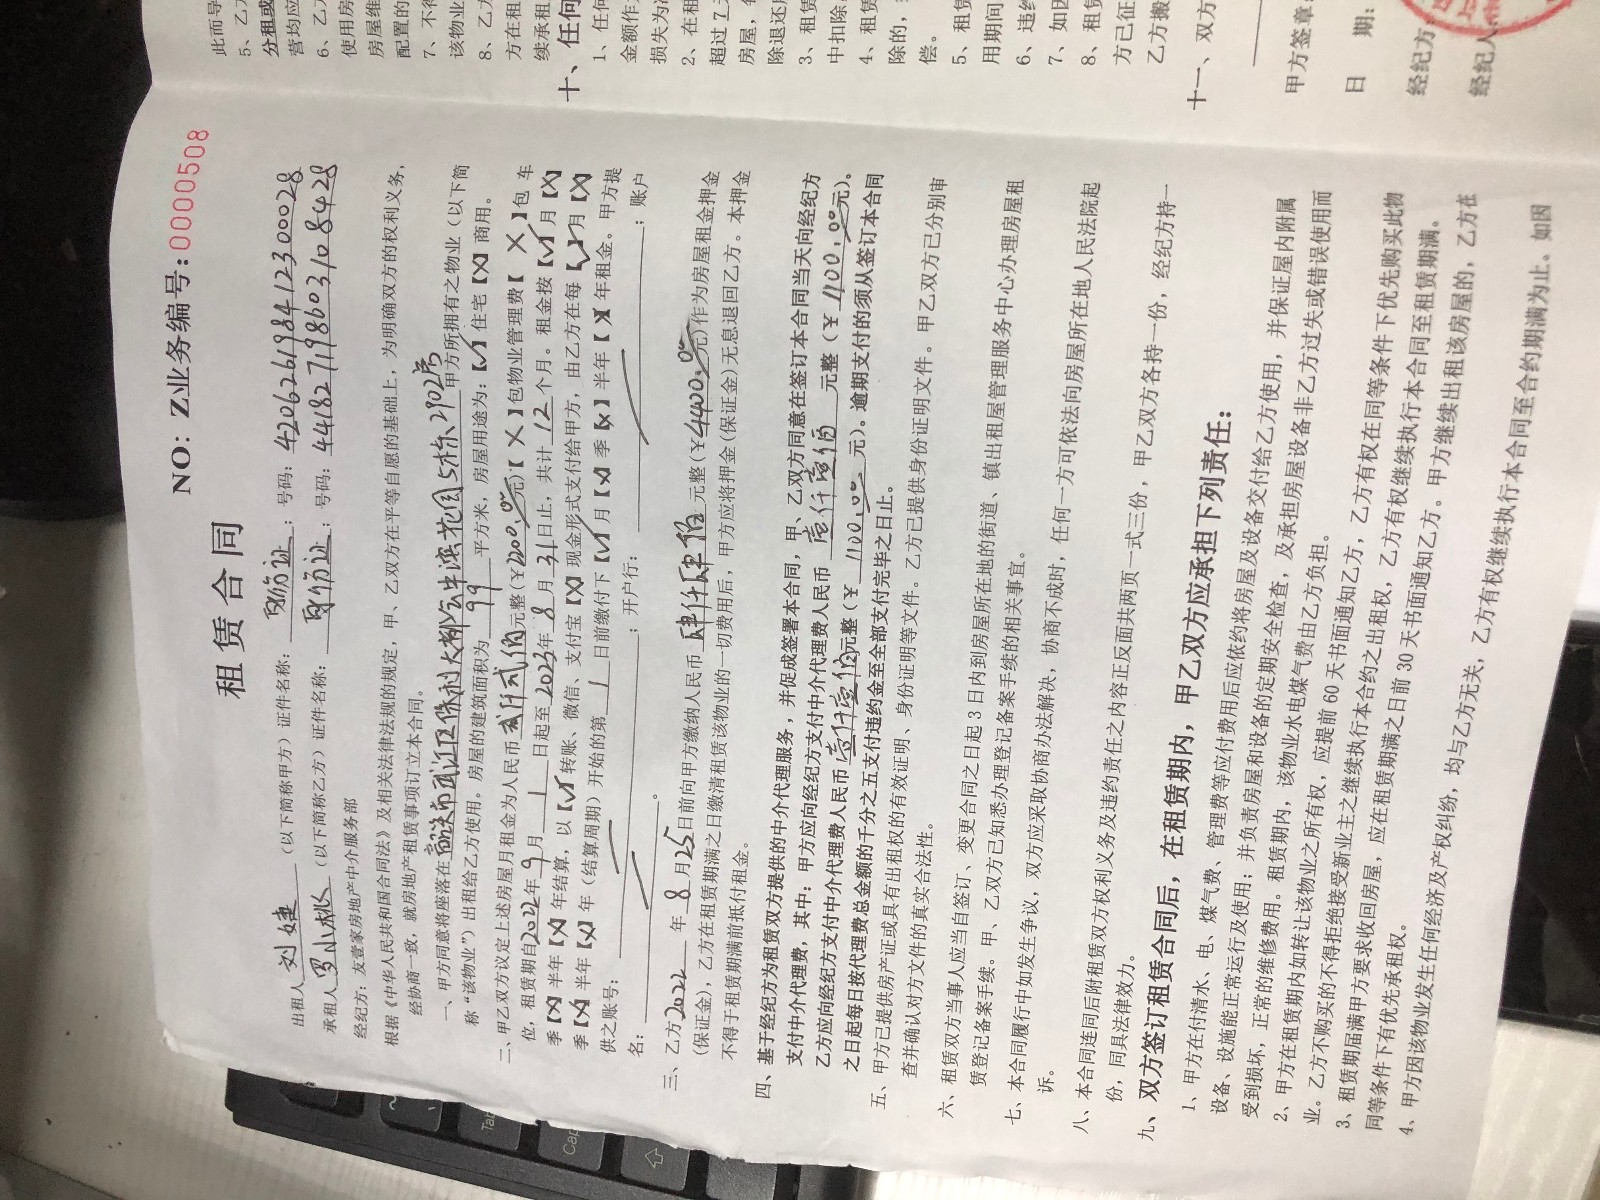 NO: Z业务编号:0000508
租赁合同
出租人 刘婕 (以下简称甲方) 证件名称: 身份证 ; 号码: 420626198412300028
承租人 罗小桃 (以下简称乙方) 证件名称: 身份证 ; 号码: 441827198603108428
经纪方: 友壹家房地产中介服务部
根据《中华人民共和国合同法》及相关法律法规的规定, 甲、乙双方在平等自愿的基础上, 为明确双方的权利义务,
经协商一致, 就房地产租赁事项订立本合同。
一、甲方同意将座落在 韶关市武江区保利大都会中湾花园5栋2902房 甲方所拥有之物业 (以下简
称“该物业”) 出租给乙方使用。房屋的建筑面积为 99 平方米, 房屋用途为:【√】住宅【X】商用。
二、甲乙双方议定上述房屋月租金为人民币 贰仟贰佰 元整(¥2200.00元)【X】包物业管理费【X】包车
位, 租赁期自2022年9月1日起至2023年8月31日止, 共计12个月。租金按【√】月【X】
季【X】半年【X】年结算, 以【√】转账、微信、支付宝【X】现金形式支付给甲方, 由乙方在每【√】月【X】
季【X】半年【X】年 (结算周期) 开始的第 1 日前缴付下【√】月【X】季【X】半年【X】年租金。甲方提
供之账号: ; 开户行: ; 账户
名: 。
三、乙方2022年8月25日前向甲方缴纳人民币 肆仟肆佰 元整(¥4400.00元)作为房屋租金押金
(保证金), 乙方在租赁期满之日缴清租赁该物业的一切费用后, 甲方应将押金(保证金)无息退回乙方。本押金
不得于租赁期满前抵付租金。
四、基于经纪方为租赁双方提供的中介代理服务, 并促成签署本合同, 甲、乙双方同意在签订本合同当天向经纪方
支付中介代理费, 其中: 甲方应向经纪方支付中介代理费人民币 壹仟壹佰 元整 (¥ 1100.00元)。
乙方应向经纪方支付中介代理费人民币 壹仟壹佰 元整 (¥ 1100.00 元)。逾期支付的须从签订本合同
之日起每日按代理费总金额的千分之五支付违约金至全部支付完毕之日止。
五、甲方已提供房产证或具有出租权的有效证明、身份证明等文件。乙方已提供身份证明文件。甲乙双方已分别审
查并确认对方文件的真实合法性。
六、租赁双方当事人应当自签订、变更合同之日起3日内到房屋所在地的街道、镇出租屋管理服务中心办理房屋租
赁登记备案手续。甲、乙双方已知悉办理登记备案手续的相关事宜。
七、本合同履行中如发生争议, 双方应采取协商办法解决, 协商不成时, 任何一方可依法向房屋所在地人民法院起
诉。
八、本合同连同后附租赁双方权利义务及违约责任之内容正反面共两页一式三份, 甲乙双方各持一份, 经纪方持一
份, 同具法律效力。
九、双方签订租赁合同后, 在租赁期内, 甲乙双方应承担下列责任:
1、甲方在付清水、电、煤气费、管理费等应付费用后应依约将房屋及设备交付给乙方使用, 并保证屋内附属
设备、设施能正常运行及使用; 并负责房屋和设备的定期安全检查, 及承担房屋设备非乙方过失或错误使用而
受到损坏, 正常的维修费用。租赁期内, 该物业水电煤气费由乙方负担。
2、甲方在租赁期内如转让该物业之所有权, 应提前60天书面通知乙方, 乙方有权在同等条件下优先购买此物
业。乙方不购买的不得拒绝接受新业主之继续执行本合约之出租权, 乙方有权继续执行本合同至租赁期满。
3、租赁期届满甲方要求收回房屋, 应在租赁期满之日前30天书面通知乙方。甲方继续出租该房屋的, 乙方在
同等条件下有优先承租权。
4、甲方因该物业发生任何经济及产权纠纷, 均与乙方无关, 乙方有权继续执行本合同至合约期满为止。如因
此而导
5、乙方
分租或
营均应
6、乙方
使用房
房屋维
配置的
7、不得
该物业
8、乙方
方在租
续承租
十、任何
1、任何
金额作
损失为
2、在租
超过7
房屋,
除退还
3、租赁
中扣除
4、租赁
除的,
偿。
5、租赁
用期间
6、违约
7、如因
8、租赁
方已征
乙方搬
十一、双方
甲方签章:
日 期:
经纪方
经纪人